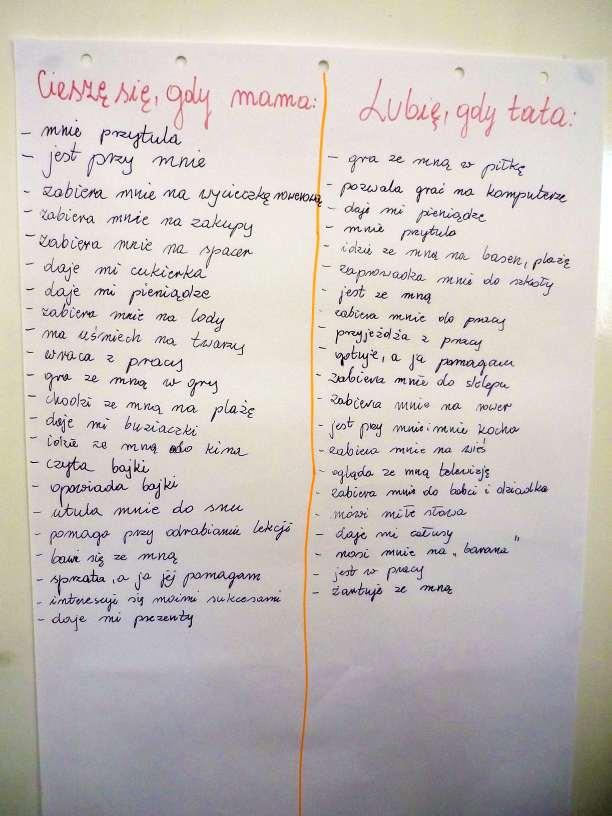 Cieszę się, gdy mama:
- mnie przytula
- jest przy mnie
- zabiera mnie na wycieczkę rowerową
- zabiera mnie na zakupy
- zabiera mnie na spacer
- daje mi cukierka
- daje mi pieniądze
- zabiera mnie na lody
- ma uśmiech na twarzy
- wraca z pracy
- gra ze mną w gry
- chodzi ze mną na plażę
- daje mi buziaczki
- idzie ze mną do kina
- czyta bajki
- opowiada bajki
- utula mnie do snu
- pomaga przy odrabianiu lekcji
- bawi się ze mną
- sprząta, a ja jej pomagam
- interesuje się moimi sukcesami
- daje mi prezenty
Lubię, gdy tata:
- gra ze mną w piłkę
- pozwala grać na komputerze
- daje mi pieniądze
- mnie przytula
- idzie ze mną na basen, plażę
- zaprowadza mnie do szkoły
- jest ze mną
- zabiera mnie do pracy
- przyjeżdża z pracy
- gotuje, a ja pomagam
- zabiera mnie do sklepu
- zabiera mnie na rower
- jest przy mnie i mnie kocha
- zabiera mnie na wieś
- ogląda ze mną telewizję
- zabiera mnie do babci i dziadka
- mówi miłe słowa
- daje mi całusy
- nosi mnie na „barana"
- jest w pracy
- żartuje ze mną